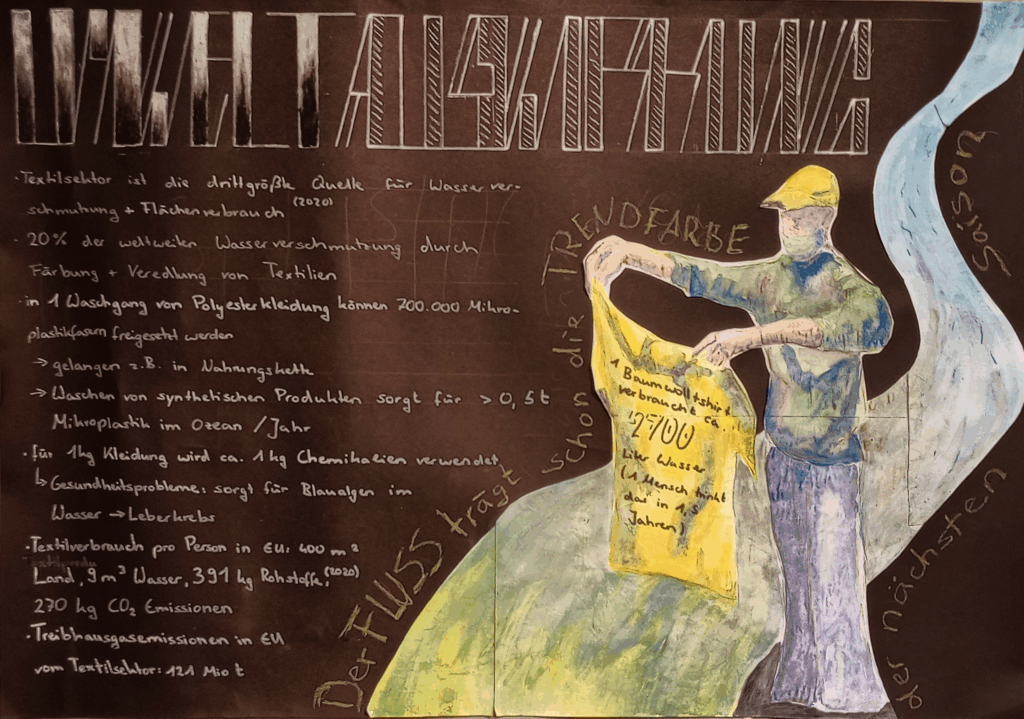 UMWELTAUSWIRKUNG
· Textilsektor ist die drittgrößte Quelle für Wasserver-
schmutzung + Flächenverbrauch (2020)
· 20% der weltweiten Wasserverschmutzung durch
Färbung + Veredlung von Textilien
· in 1 Waschgang von Polyesterkleidung können 700.000 Mikro-
plastikfasern freigesetzt werden
→ gelangen z.B. in Nahrungskette
→ Waschen von synthetischen Produkten sorgt für > 0,5 t
Mikroplastik im Ozean / Jahr
· für 1kg Kleidung wird ca. 1kg Chemikalien verwendet
↳ Gesundheitsprobleme: sorgt für Blaualgen im
Wasser → Leberkrebs
· Textilverbrauch pro Person in EU: 400 m²
Land, 9 m³ Wasser, 391 kg Rohstoffe, (2020)
270 kg CO₂ Emissionen
· Treibhausgasemissionen in EU
vom Textilsektor: 121 Mio t
Der FLUSS trägt schon die TRENDFARBE
der nächsten Saison
1 Baumwolltshirt
verbraucht ca.
2700
Liter Wasser
(1 Mensch trinkt
das in 2,5
Jahren)